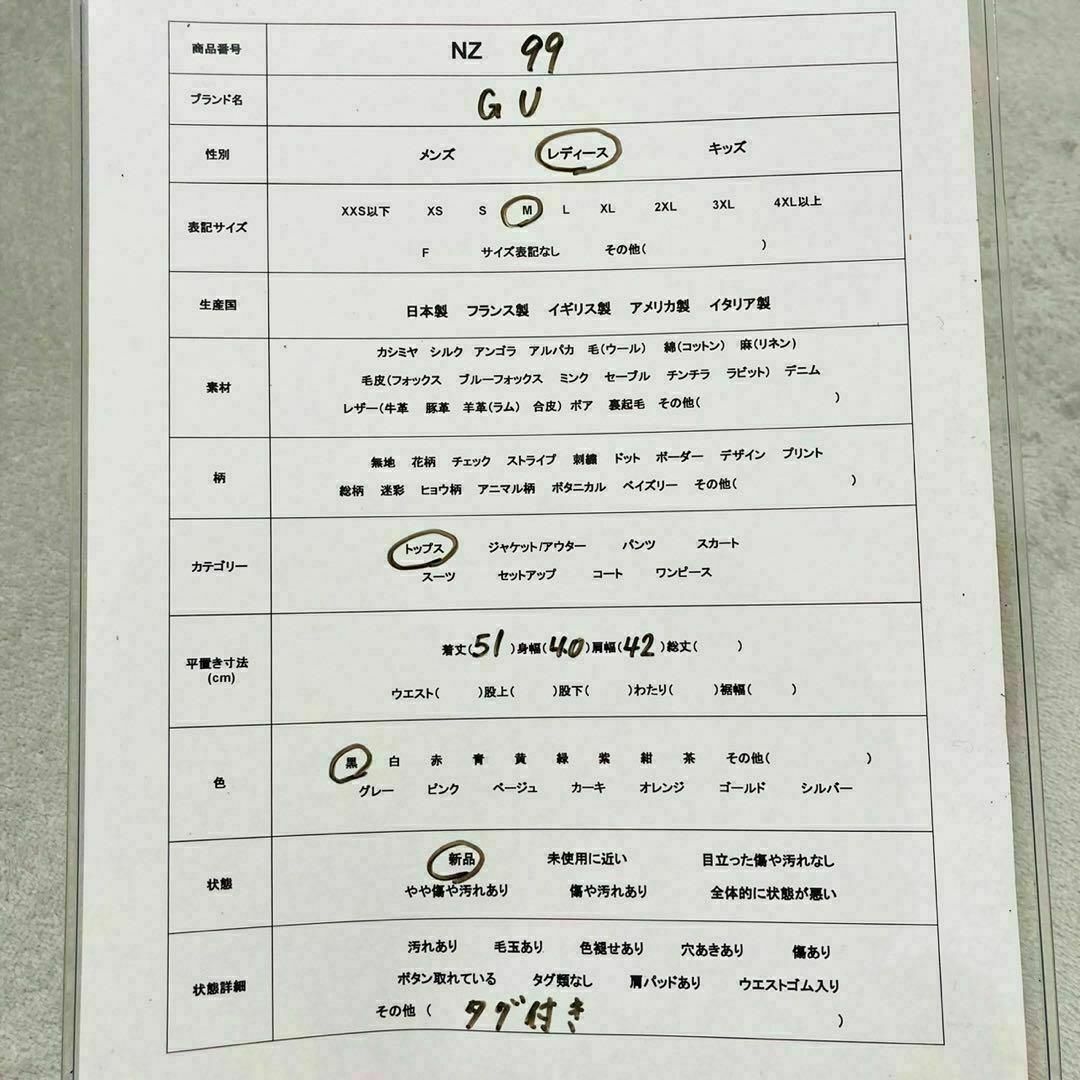 商品番号 NZ 99
ブランド名 GU
性別 メンズ レディース キッズ
XXS以下 XS S M L XL 2XL 3XL 4XL以上
表記サイズ
F サイズ表記なし その他( )
生産国 日本製 フランス製 イギリス製 アメリカ製 イタリア製
カシミヤ シルク アンゴラ アルパカ 毛(ウール) 綿(コットン) 麻(リネン)
素材 毛皮(フォックス ブルーフォックス ミンク セーブル チンチラ ラビット) デニム
レザー(牛革 豚革 羊革(ラム) 合皮) ボア 裏起毛 その他( )
無地 花柄 チェック ストライプ 刺繍 ドット ボーダー デザイン プリント
柄
総柄 迷彩 ヒョウ柄 アニマル柄 ボタニカル ペイズリー その他( )
トップス ジャケット/アウター パンツ スカート
カテゴリー
スーツ セットアップ コート ワンピース
着丈(51)身幅(40)肩幅(42)総丈( )
平置き寸法
(cm)
ウエスト( )股上( )股下( )わたり( )裾幅( )
黒 白 赤 青 黄 緑 紫 紺 茶 その他( )
色
グレー ピンク ベージュ カーキ オレンジ ゴールド シルバー
新品 未使用に近い 目立った傷や汚れなし
状態
やや傷や汚れあり 傷や汚れあり 全体的に状態が悪い
汚れあり 毛玉あり 色褪せあり 穴あきあり 傷あり
状態詳細 ボタン取れている タグ類なし 肩パッドあり ウエストゴム入り
その他 ( タグ付き )